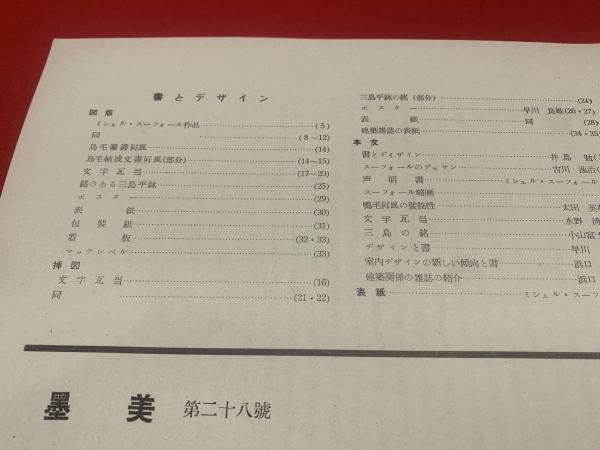 書とデザイン
図版
ミシェル・スーフォール作品 (5)
同 (8〜12)
鳥毛篆書屏風 (14)
鳥毛帖成文書屏風(部分) (14〜15)
文字瓦当 (17〜20)
銘のある三島平鉢 (25)
ポスター (29)
表紙 (30)
包装紙 (31)
看板 (32・33)
マッチレベル (33)
挿図
文字瓦当 (16)
同 (21・22)
三島平鉢の銘(部分) (24)
ポスター 早川良雄 (26・27)
表紙 同 (28)
建築雑誌の表紙 (34・35
本文
書とデイザイン 井島勉
スーフォールのデッサン 吉川逸治
声明書 ミシェル・スーフォール
スーフォール略歴
鳥毛屏風の装飾性 太田英
文字瓦当 水野清
三島の銘 小山富士
デザインと書 早川
室内デザインの新しい傾向と書 浜口
建築関係の雑誌の紹介 浜口
表紙 ミシェル・スーフ
墨美 第二十八號